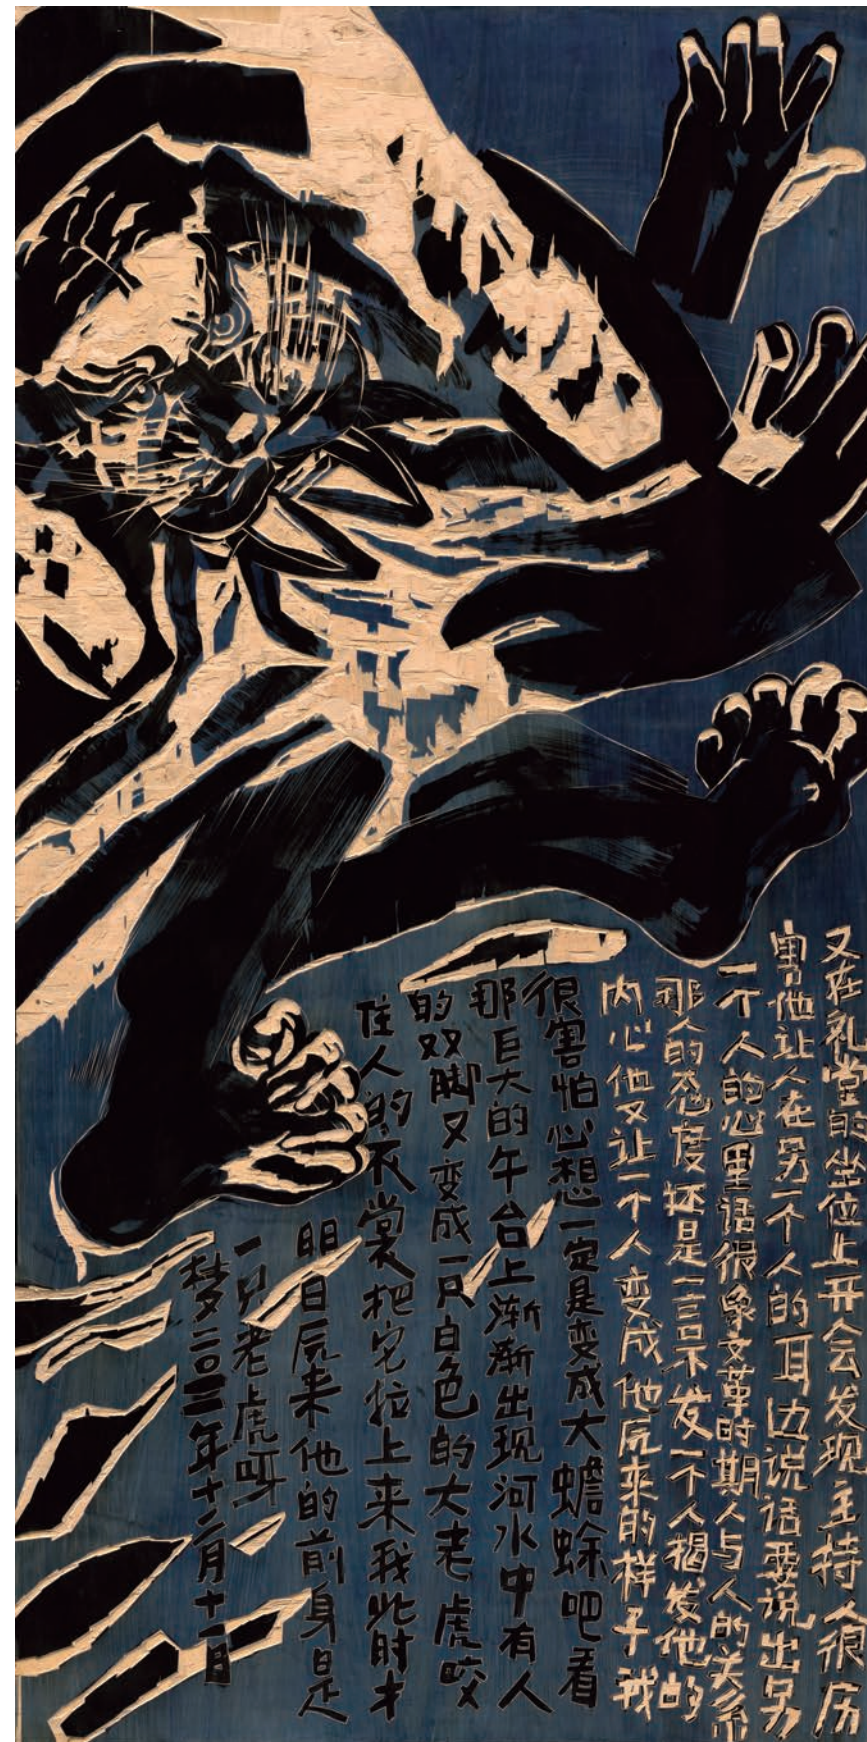 又在礼堂的坐位上开会发现主持人很厉
害他让人在另一个人的耳边说话要说出另
一个人的心里话很象文革时期人与人的关系
那人的态度还是一言不发一个人揭发他的
内心他又让一个人变成他原来的样子我
很害怕心想一定是变成大蟾蜍吧看
那巨大的午台上渐渐出现河水中有人
的双脚又变成一只白色的大老虎咬
住人的衣裳把它拉上来我此时才
明白原来他的前身是
一只老虎呵
梦二〇一三年十二月十一日